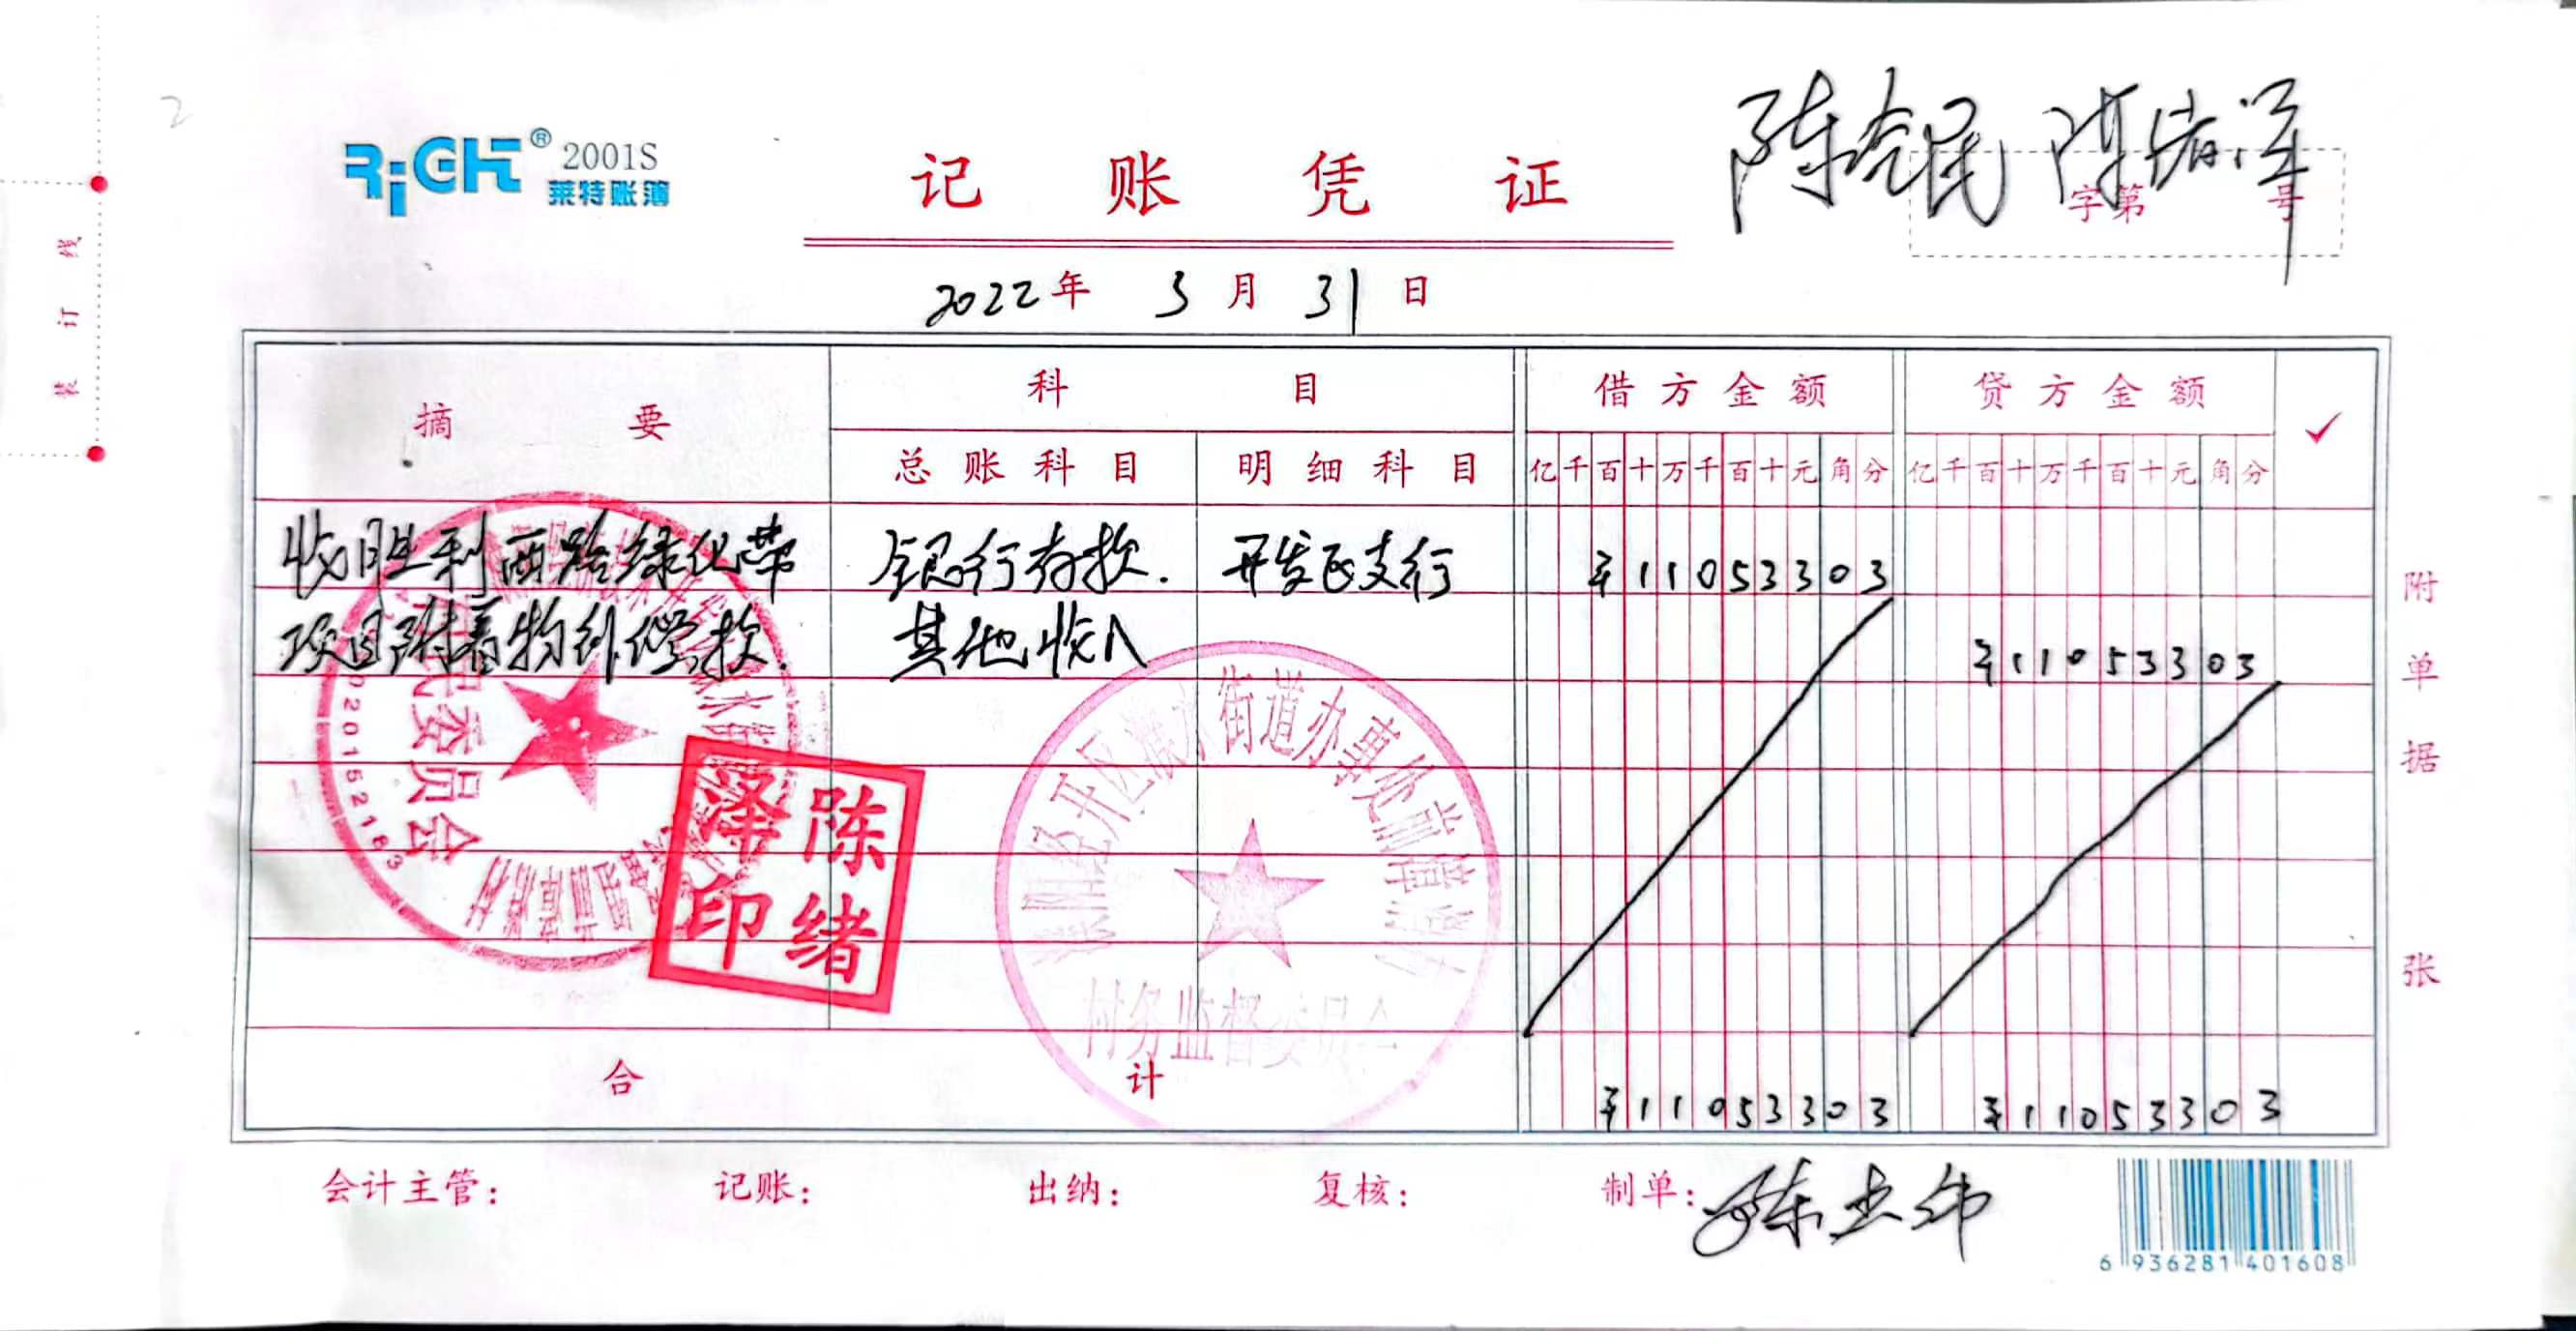 RiGHT® 2001S
莱特账簿
记账凭证
字第 号
2022年 3月 31日
装订线
摘要 科目 借方金额 贷方金额 ✓
总账科目 明细科目 亿千百十万千百十元角分 亿千百十万千百十元角分
收胜利西路绿化带 银行存款. 开发区支行 ¥11053303
项目附着物补偿款. 其他收入 ¥11053303
合计 ¥11053303 ¥11053303
附单据 张
民委员会
02015521
陈绪泽印
经开区 水街道办事处前
村务监督委员会
会计主管: 记账: 出纳: 复核: 制单:
6 936281 401608